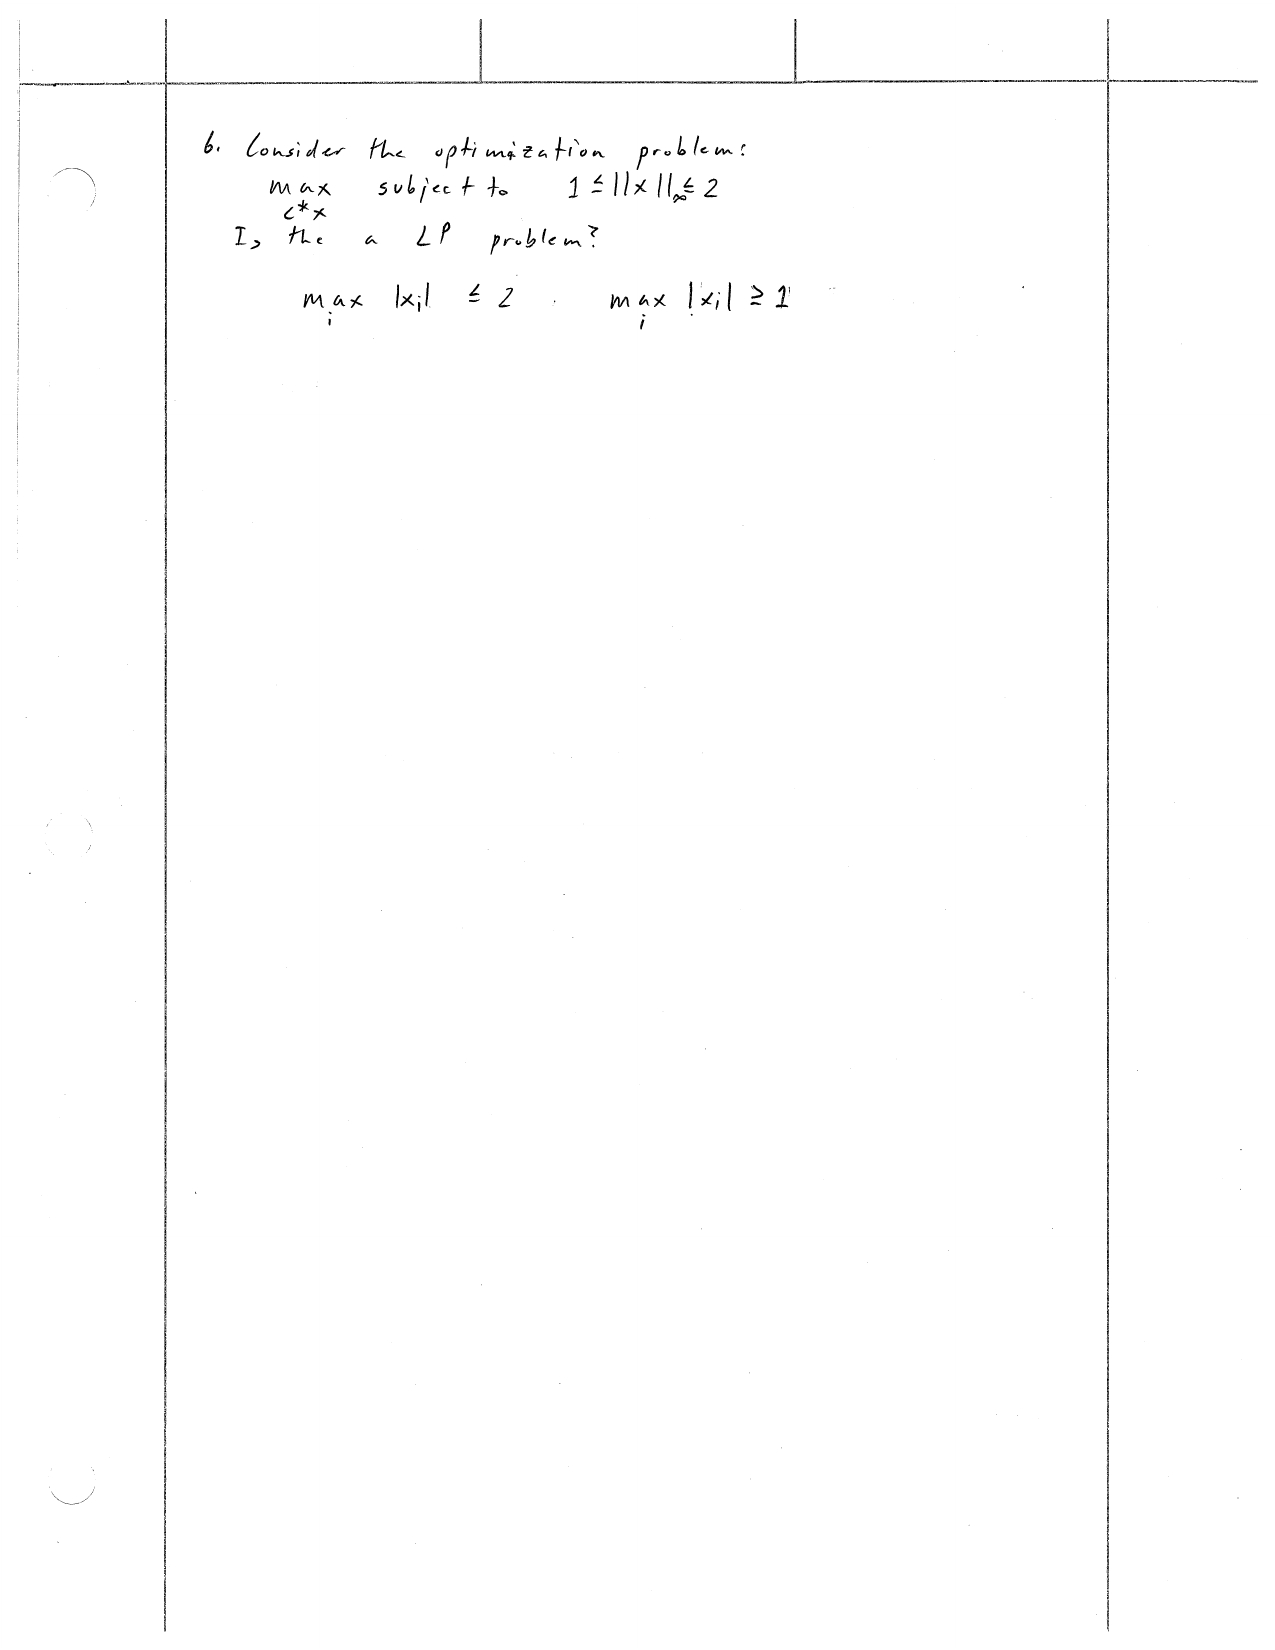 6. Consider the optimization problem:
max subject to 1 ≤ ||x||∞ ≤ 2
c*x
Is the a LP problem?
max |xi| ≤ 2 . max |xi| ≥ 1
i i